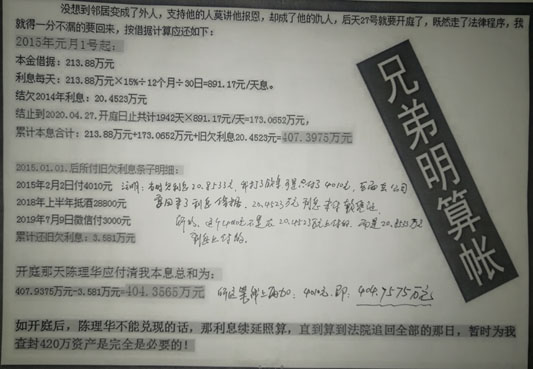 没想到邻居变成了外人，支持他的人莫讲他报恩，却成了他的仇人，后天27号就要开庭了，既然走了法律程序，我
就得一分不漏的要回来，按借据计算应还如下：
2015年元月1号起：
本金借据：213.88万元
利息每天：213.88万元×15%÷12个月÷30日=891.17元/天息。
结欠2014年利息：20.4523万元
结止到2020.04.27.开庭日止共计1942天×891.17元/天=173.0652万元，
累计本息合计：213.88万元+173.0652万元+旧欠利息20.4523元=407.3975万元
2015.01.01.后所付旧欠利息条子明细：
2015年2月2日付4010元
2018年上半年抵酒28800元
2019年7月9日微信付3000元
累计还旧欠利息：3.581万元
注明：利息20.8533元，4010元，
20.4523万元
所以，这个4010元不是在20.4523万元上付的
开庭那天陈理华应付清我本息总和为：
407.9375万元-3.581万元=404.3565万元
所以这笔账上再加：4010元，即：404.7575万元
如开庭后，陈理华不能兑现的话，那利息续延照算，直到算到法院追回全部的那日，暂时为我
查封420万资产是完全是必要的！
兄弟明算帐